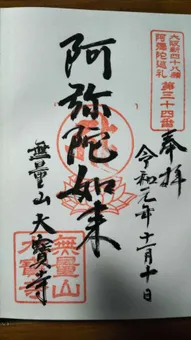 大阪新四十八願
阿彌陀巡礼
第三十四番
奉拝
令和元年十一月十日
阿弥陀如来
無量山大寳寺
無量山
大寳寺